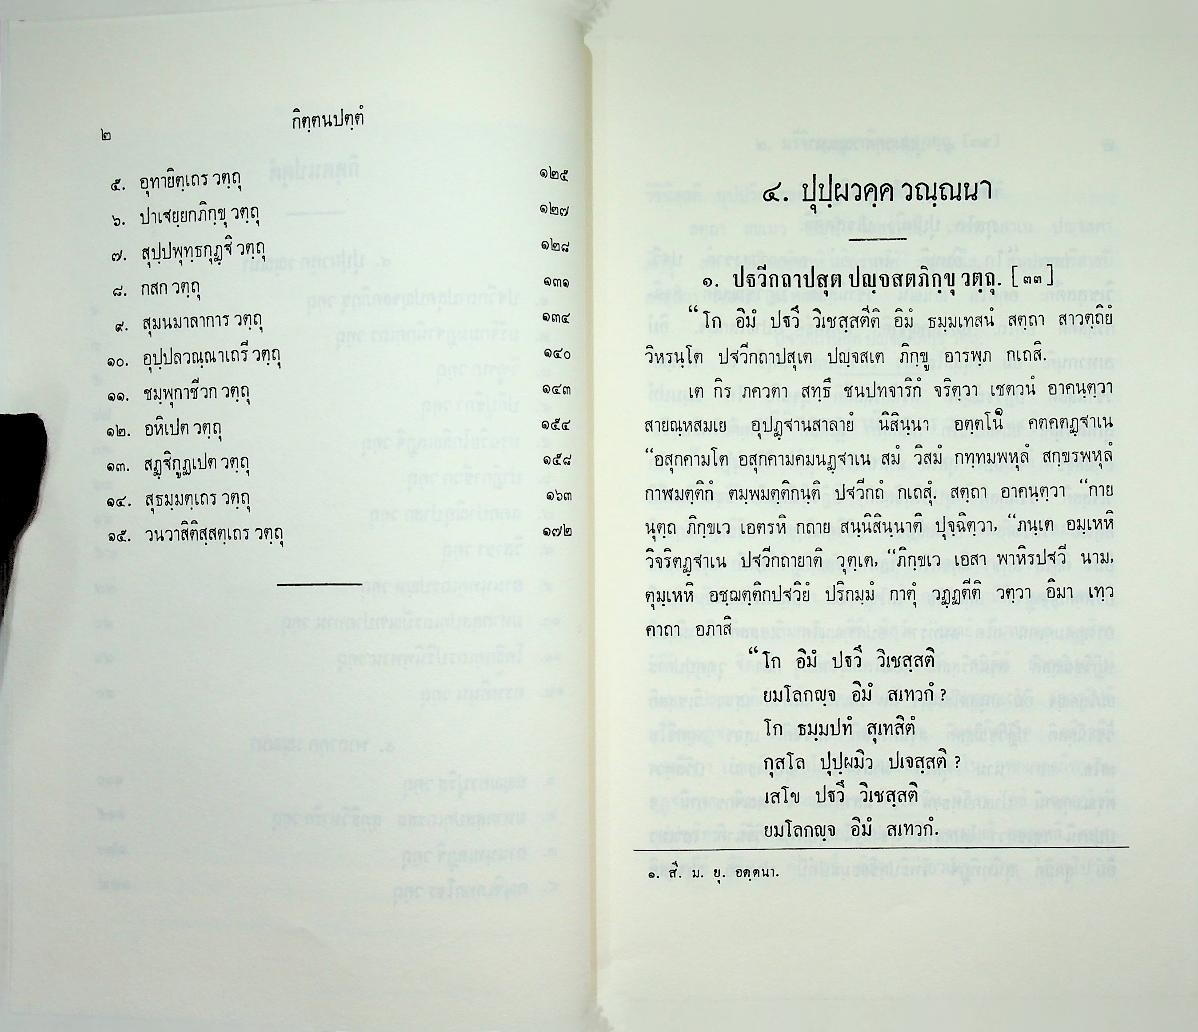 ๒
กิตฺตนปตฺตํ
๕. อุทายิตฺเถร วตฺถุ ๑๒๕
๖. ปาเฐยฺยกภิกฺขุ วตฺถุ ๑๒๗
๗. สุปฺปพุทฺธกุฏฺฐิ วตฺถุ ๑๒๘
๘. กสก วตฺถุ ๑๓๑
๙. สุมนมาลาการ วตฺถุ ๑๓๔
๑๐. อุปฺปลวณฺณาเถรี วตฺถุ ๑๔๐
๑๑. ชมฺพุกาชีวก วตฺถุ ๑๔๓
๑๒. อหิเปต วตฺถุ ๑๕๔
๑๓. สฏฺฐิกูฏเปต วตฺถุ ๑๕๘
๑๔. สุธมฺมตฺเถร วตฺถุ ๑๖๓
๑๕. วนวาสิติสฺสตฺเถร วตฺถุ ๑๗๒
๔. ปุปฺผวคฺค วณฺณนา
๑. ปฐวีกถาปสุต ปญฺจสตภิกฺขุ วตฺถุ. [๓๓]
“โก อิมํ ปฐวึ วิเชสฺสตีติ อิมํ ธมฺมเทสนํ สตฺถา สาวตฺถิยํ
วิหรนฺโต ปฐวีกถาปสุเต ปญฺจสเต ภิกฺขู อารพฺภ กเถสิ.
เต กิร ภควตา สทฺธึ ชนปทจาริกํ จริตฺวา เชตวนํ อาคนฺตฺวา
สายณฺหสมเย อุปฏฺฐานสาลายํ นิสินฺนา อตฺตโน๑ คตคตฏฺฐาเน
“อสุกคามโต อสุกคามคมนฏฺฐาเน สมํ วิสมํ กทฺทมพหุลํ สกฺขรพหุลํ
กาฬมตฺติกํ ตมฺพมตฺติกนฺติ ปฐวีกถํ กเถสุํ. สตฺถา อาคนฺตฺวา “กาย
นุตฺถ ภิกฺขเว เอตรหิ กถาย สนฺนิสินฺนาติ ปุจฺฉิตฺวา, “ภนฺเต อมฺเหหิ
วิจริตฏฺฐาเน ปฐวีกถายาติ วุตฺเต, “ภิกฺขเว เอสา พาหิรปฐวี นาม,
ตุมฺเหหิ อชฺฌตฺติกปฐวิยํ ปริกมฺมํ กาตุํ วฏฺฏตีติ วตฺวา อิมา เทฺว
คาถา อภาสิ
“โก อิมํ ปฐวึ วิเชสฺสติ
ยมโลกญฺจ อิมํ สเทวกํ ?
โก ธมฺมปทํ สุเทสิตํ
กุสโล ปุปฺผมิว ปเจสฺสติ ?
เสโข ปฐวึ วิเชสฺสติ
ยมโลกญฺจ อิมํ สเทวกํ.
๑. สี. ม. ยุ. อตฺตนา.